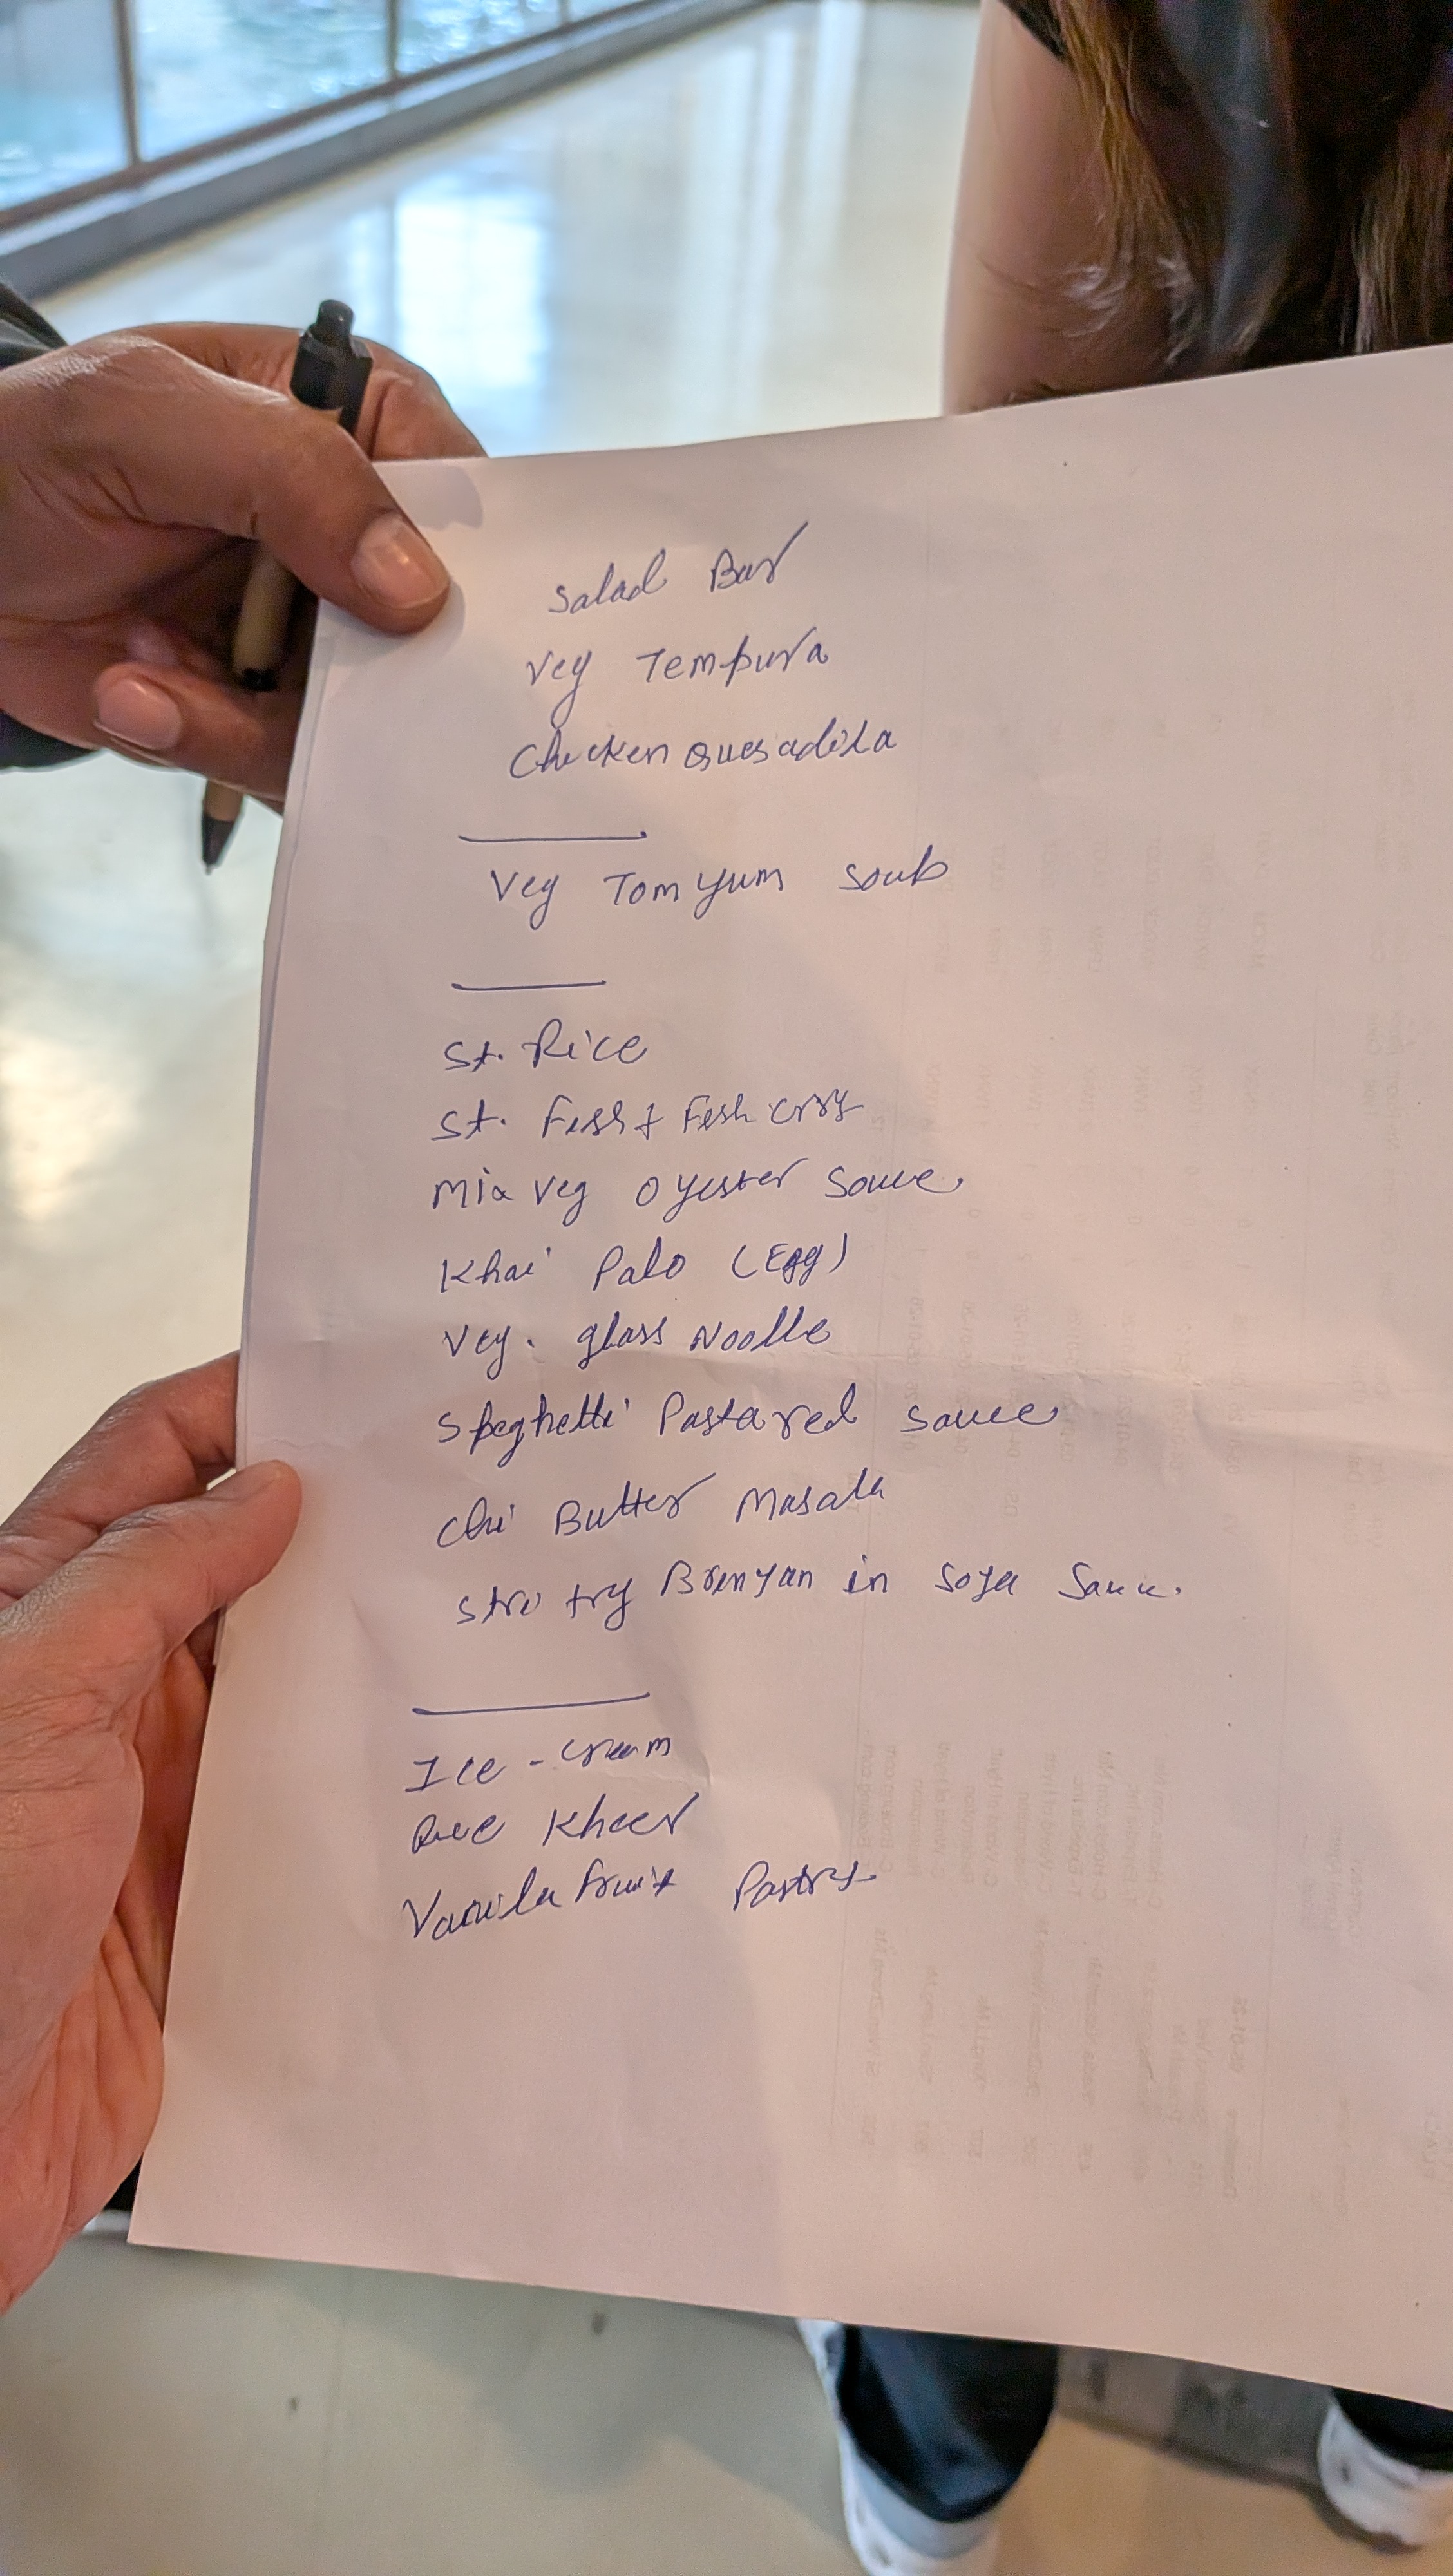 Salad Bar
Veg Tempura
Chicken Quesadila
Veg Tom yum soup
St. Rice
St. Fish & Fish crry
Mix veg oyester Sauce
Khai Palo (Egg)
Veg. glass Noodle
Speghetti Pasta red sauce
Chi Butter Masala
in Soya Sauce.
Ice-cream
Rice Kheer
Vanila fruit Pastry